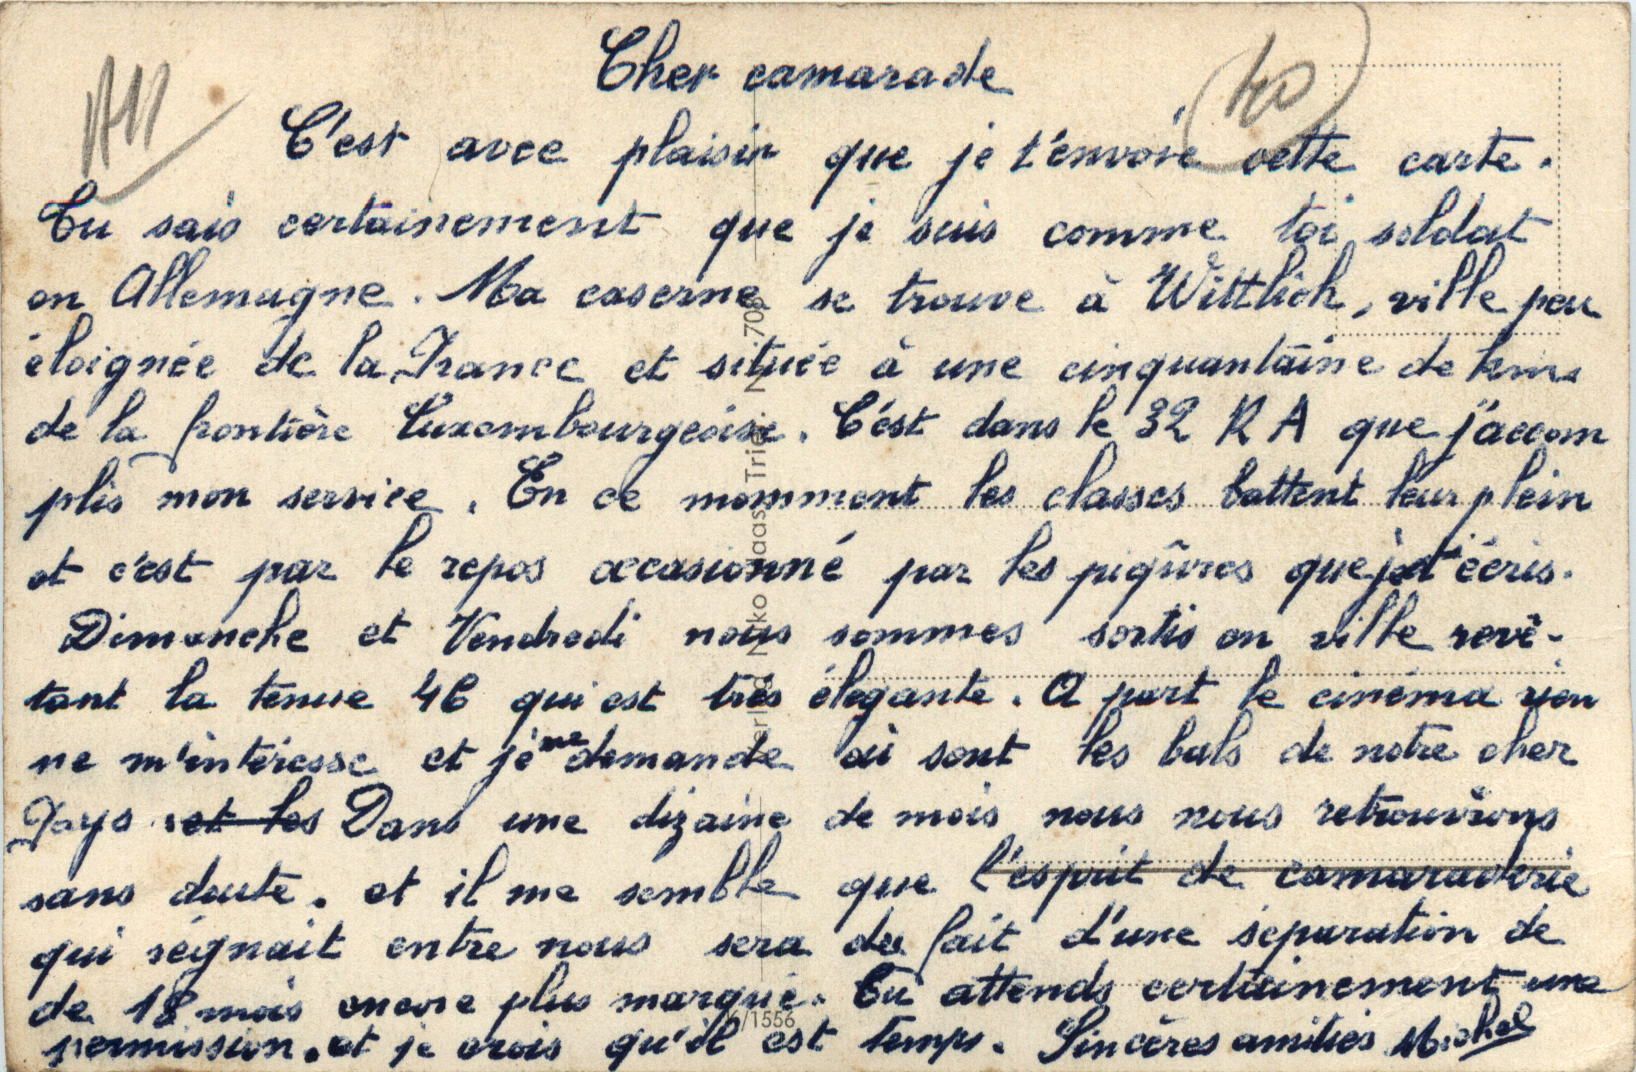 Cher camarade
40
C'est avec plaisir que je t'envoie cette carte.
Tu sais certainement que je suis comme toi soldat
en Allemagne. Ma caserne se trouve à Wittlich, ville peu
éloignée de la France et située à une cinquantaine de kms
de la frontière Luxembourgeoise. C'est dans le 32 RA que j'accom
plis mon service. En ce momment les classes battent leur plein
et c'est par le repos occasionné par les piqûres que je t'écris.
Dimanche et Vendredi nous sommes sortis en ville revê-
tant la tenue 46 qui est très élégante. A part le cinéma rien
ne m'intéresse et je me demande où sont les bals de notre cher
Pays. et les Dans une dizaine de mois nous nous retrouvrons
sans doute. et il me semble que l'esprit de camaraderie
qui régnait entre nous sera du fait d'une séparation de
de 18 mois encore plus marqué. Tu attends certainement une
permission. et je crois qu'il est temps. Sincères amitiés Michel
6/1556